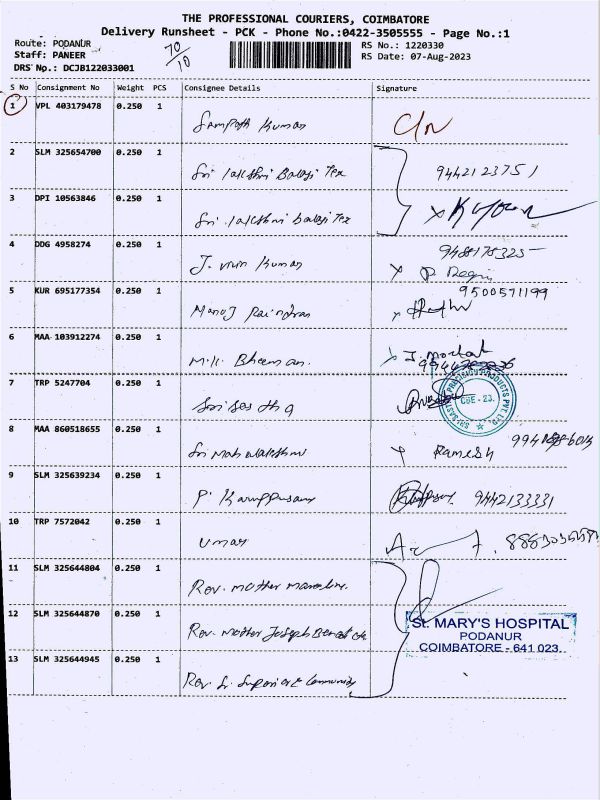 THE PROFESSIONAL COURIERS, COIMBATORE
Delivery Runsheet - PCK - Phone No.:0422-3505555 - Page No.:1
Route: PODANUR
Staff: PANEER
DRS No.: DCJB122033001
70/10
RS No.: 1220330
RS Date: 07-Aug-2023
S No Consignment No Weight PCS Consignee Details Signature
1 VPL 403179478 0.250 1 Sampath Kumar
2 SLM 325654700 0.250 1 Sri lakshmi Balaji Tex 9442123751
3 DPI 10563846 0.250 1 Sri lakshmi balaji Tex
4 DDG 4958274 0.250 1 J. Kumar
5 KUR 695177354 0.250 1 Manoj 9500571199
6 MAA 103912274 0.250 1 M.K. Bheeman.
7 TRP 5247704 0.250 1 CBE - 23.
8 MAA 860518655 0.250 1 Sri Mahalakshmi RAMESH
9 SLM 325639234 0.250 1 P. Karuppusamy 9442133331
10 TRP 7572042 0.250 1 Umar
11 SLM 325644804 0.250 1 Rev. mother
12 SLM 325644870 0.250 1 Rev. mother Joseph
13 SLM 325644945 0.250 1 Rev. Sr. Superior & Community
St. MARY'S HOSPITAL
PODANUR
COIMBATORE - 641 023.